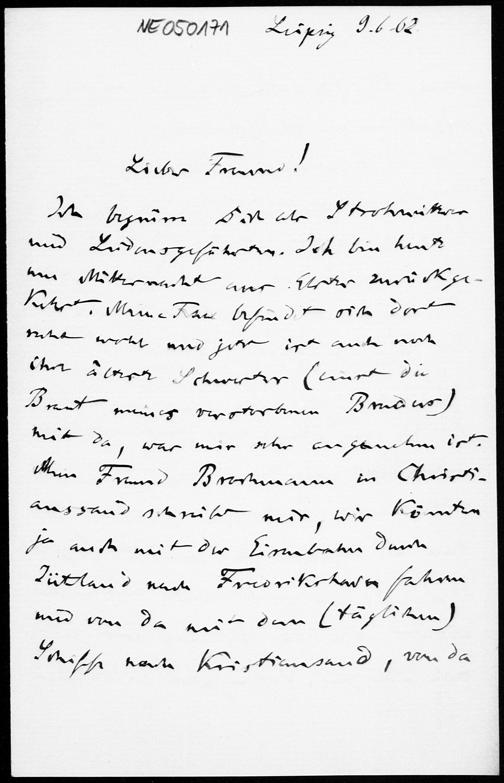 NE050171
Leipzig 9.6.02
Lieber Freund!
Ich begrüsse Dich als Strohwittwer
und Leidensgefährten. Ich bin heute
um Mitternacht aus Elster zurückge-
kehrt. Meine Frau befindet sich dort
recht wohl und jetzt ist auch noch
ihre älteste Schwester (einst die
Braut meines verstorbenen Bruders)
mit da, was mir sehr angenehm ist.
Mein Freund Brochmann in Christi-
anssand schreibt mir, wir könnten
ja auch mit der Eisenbahn durch
Jütland nach Fredrikshavn fahren
und von da mit dem (täglichen)
Schiffe nach Kristianssand, von da